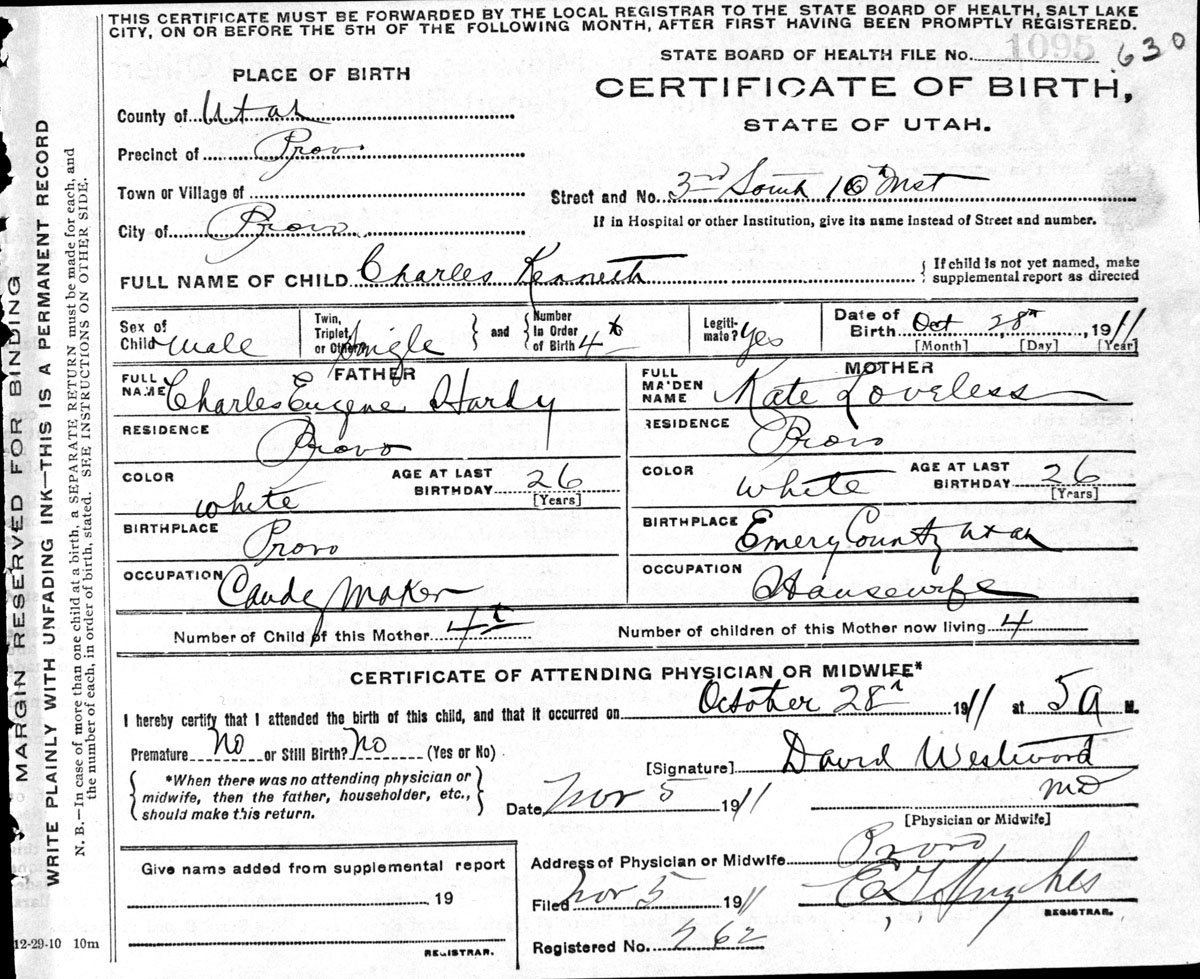 THIS CERTIFICATE MUST BE FORWARDED BY THE LOCAL REGISTRAR TO THE STATE BOARD OF HEALTH, SALT LAKE
CITY, ON OR BEFORE THE 5TH OF THE FOLLOWING MONTH, AFTER FIRST HAVING BEEN PROMPTLY REGISTERED.
STATE BOARD OF HEALTH FILE No. 1095 630
PLACE OF BIRTH
CERTIFICATE OF BIRTH,
STATE OF UTAH.
County of Utah
Precinct of Provo
Town or Village of
Street and No. 3rd South 10th
City of Provo
If in Hospital or other Institution, give its name instead of Street and number.
FULL NAME OF CHILD Charles Kenneth
{ If child is not yet named, make
supplemental report as directed
Sex of Child Male
Twin, Triplet, or Other? Single } and { Number In Order of Birth 4th
Legiti-mate? Yes
Date of Birth Oct 28th, 1911
[Month] [Day] [Year]
FATHER
FULL NAME Charles Eugene Hardy
RESIDENCE Provo
COLOR white
AGE AT LAST BIRTHDAY 26
[Years]
BIRTHPLACE Provo
OCCUPATION Candy Maker
MOTHER
FULL MAIDEN NAME Kate Loveless
RESIDENCE Provo
COLOR White
AGE AT LAST BIRTHDAY 26
[Years]
BIRTHPLACE Emery County Utah
OCCUPATION Housewife
Number of Child of this Mother 4th
Number of children of this Mother now living 4
CERTIFICATE OF ATTENDING PHYSICIAN OR MIDWIFE*
I hereby certify that I attended the birth of this child, and that it occurred on October 28th 1911 at 5 a M.
Premature No or Still Birth? No (Yes or No)
*When there was no attending physician or
midwife, then the father, householder, etc.,
should make this return.
[Signature] David Westwood
MD
Date Nov 5 1911
[Physician or Midwife]
Address of Physician or Midwife Provo
Filed Nov 5 1911
Hughes
REGISTRAR.
Registered No. 262
Give name added from supplemental report
19
REGISTRAR.
12-29-10 10m
MARGIN RESERVED FOR BINDING
WRITE PLAINLY WITH UNFADING INK—THIS IS A PERMANENT RECORD
N. B.—In case of more than one child at a birth, a SEPARATE RETURN must be made for each, and
the number of each, in order of birth, stated. SEE INSTRUCTIONS ON OTHER SIDE.